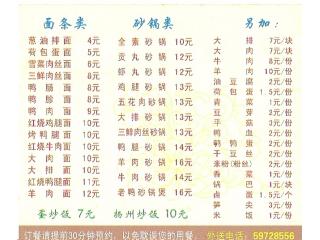 面条类 砂锅类 另加:
葱油排面 4元 全素砂锅 10元 大排 7元/块
荷包蛋面 5元 贡丸砂锅 12元 大肉 7元/块
雪菜肉丝面 6元 虾丸砂锅 12元 牛肉 8元/份
三鲜肉丝面 8元 羊肉 10元/份
鸭肠面 8元 鸡腿砂锅 13元 油豆腐 2元/份
鸭胗面 8元 五花肉砂锅 13元 荷包蛋 1.5元/份
鸭肉面 9元 大排砂锅 13元 青菜 1元/份
红烧鸡腿面 10元 三鲜砂锅 13元 豆芽 2元/份
烤鸭腿面 10元 肉丝砂锅 13元 豆苗 3元/份
红烧牛肉面 10元 鸭肉砂锅 14元 鸭血 1元/份
大肉面 10元 牛肉砂锅 14元 鹌鹑蛋 2元/份
大排面 11元 干豆丝 2元/份
红烧鸭腿面 11元 羊肉砂锅 16元 香菜 1元/份
羊肉面 12元 老鸭砂锅煲 16元
蛋炒饭 7元 扬州炒饭 10元 米饭 1元/份
订餐请提前30分钟预约，以免耽误您的用餐。 外送电话：59728556